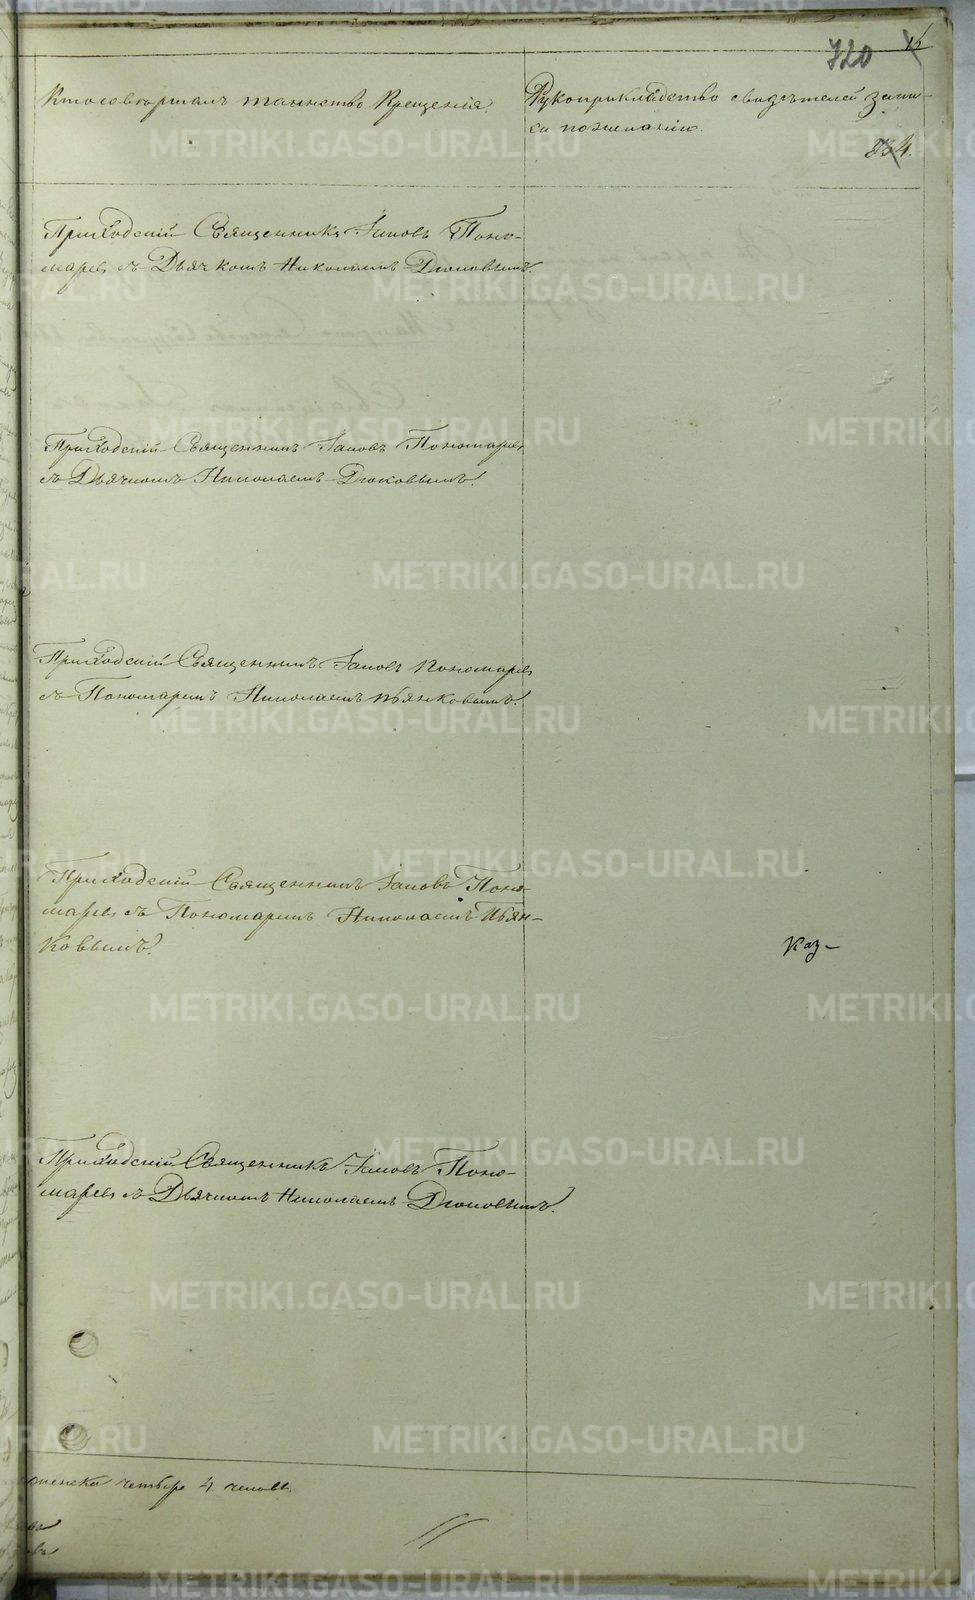 720
Кто совершалъ таинство Крещенія.
Рукоприкладство свидѣтелей запи-
си по желанію.
834.
Приходскій Священникъ Іаковъ Поно-
маревъ съ Дьячкомъ Николаемъ Дюковымъ.
Приходскій Священникъ Іаковъ Пономаревъ
съ Дьячкомъ Николаемъ Дюковымъ.
Приходскій Священникъ Іаковъ Пономаревъ
съ Пономаремъ Николаемъ Пьянковымъ.
Приходскій Священникъ Іаковъ Поно-
маревъ съ Пономаремъ Николаемъ Пьян-
ковымъ.
Каз-
Приходскій Священникъ Іаковъ Поно-
маревъ съ Дьячкомъ Николаемъ Дюковымъ.
женска четыре 4 человѣ.
METRIKI.GASO-URAL.RU